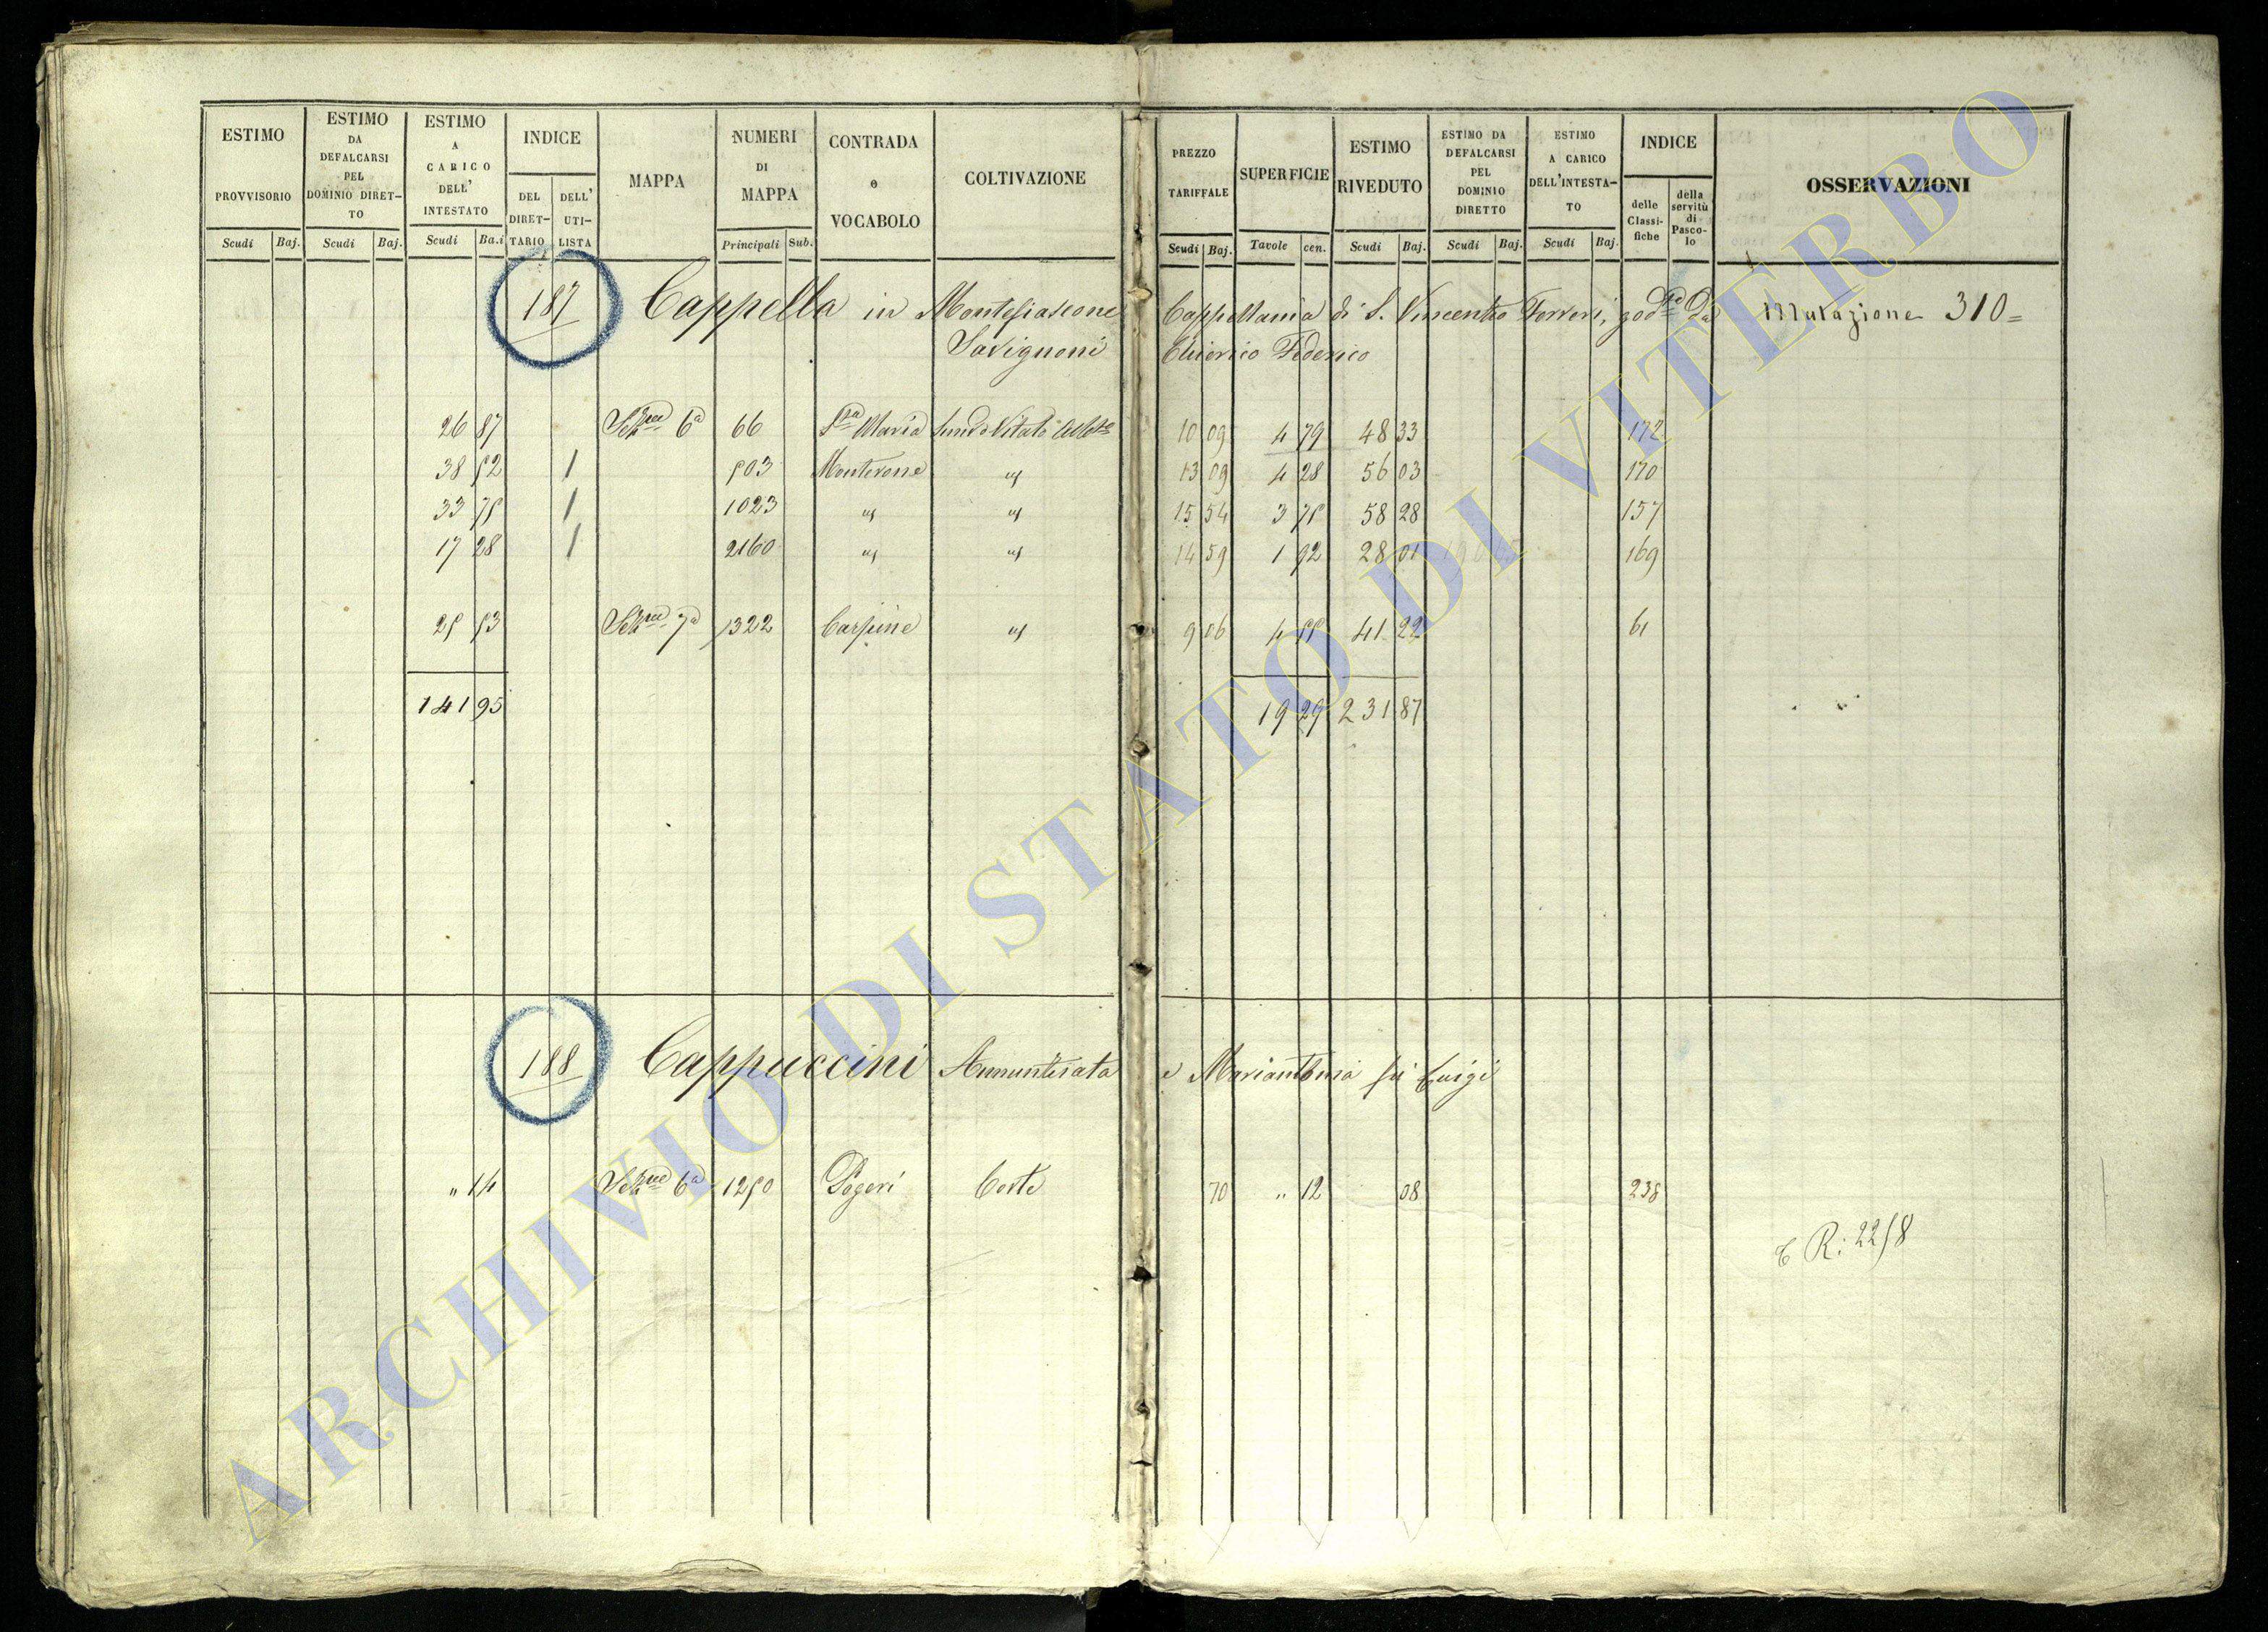 ESTIMO PROVVISORIO Scudi Baj.
ESTIMO DA DEFALCARSI PEL DOMINIO DIRET-TO Scudi Baj.
ESTIMO A CARICO DELL' INTESTATO Scudi Ba.i
INDICE DEL DIRET-TARIO DELL' UTI-LISTA
MAPPA
NUMERI DI MAPPA Principali Sub.
CONTRADA e VOCABOLO
COLTIVAZIONE
PREZZO TARIFFALE Scudi Baj.
SUPERFICIE Tavole cen.
ESTIMO RIVEDUTO Scudi Baj.
ESTIMO DA DEFALCARSI PEL DOMINIO DIRETTO Scudi Baj.
ESTIMO A CARICO DELL'INTESTA-TO Scudi Baj.
INDICE delle Classi-fiche della servitù di Pasco-lo
OSSERVAZIONI
187 Cappella in Montefiascone Cappellania di S. Vincenzo Ferreri, god.ta Da Mutazione 310=
Savignoni Chierico Federico
26 87 Sez.ne 6a 66 S.ta Maria Vitato 10 09 4 79 48 33 172
38 52 1 503 Monterone " 13 09 4 28 56 03 170
33 75 1 1023 " " 15 54 3 75 58 28 157
17 28 1 2160 " " 14 59 1 92 28 01 169
25 53 Sez.ne 7a 1322 Carpine " 9 06 4 55 41 22 61
141 95 19 29 231 87
188 Cappuccini Annunziata e Mariantonia fu Luigi
" 14 Sez.ne 6a 1250 Pogeri Corte 70 " 12 08 238
R: 2258
ARCHIVIO DI STATO DI VITERBO